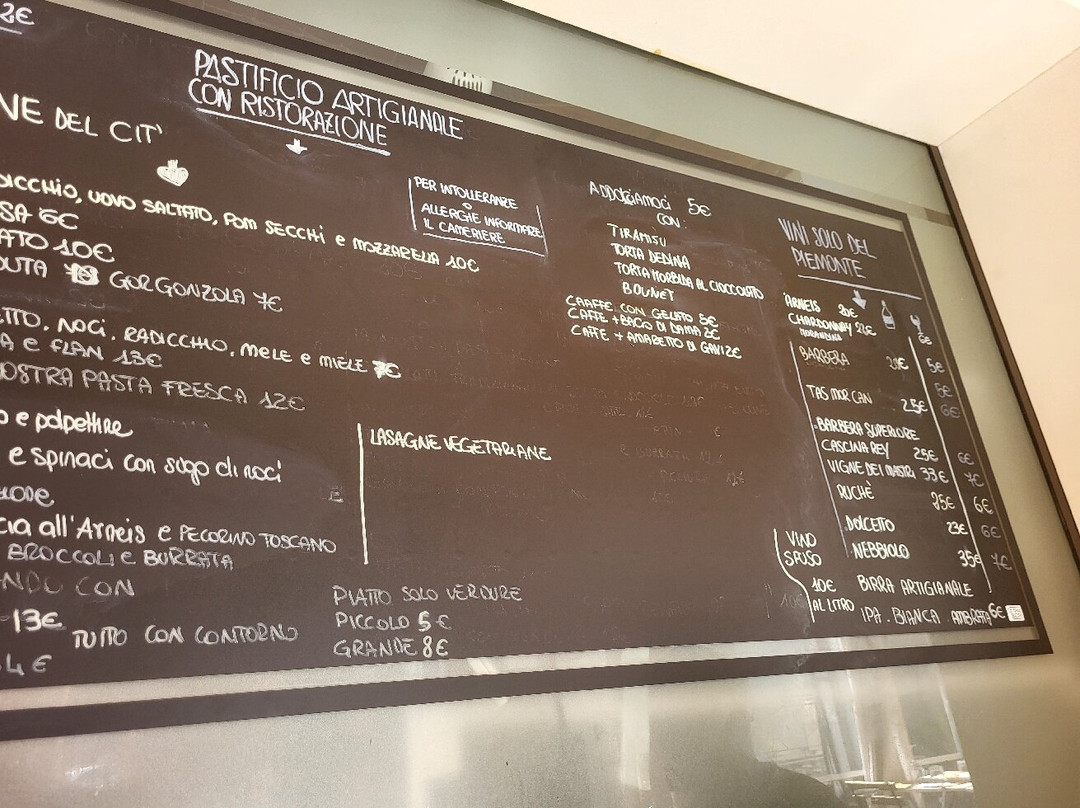 2€
PASTIFICIO ARTIGIANALE
CON RISTORAZIONE
VE DEL CIT'
DICCHIO, UOVO SALTATO, POM SECCHI e MOZZARELLA 10€
SA 6€
ATO 10€
DUTA GORGONZOLA 7€
ETTO, NOCI, RADICCHIO, MELE e MIELE 7€
A e FLAN 13€
NOSTRA PASTA FRESCA 12€
o e polpettine
e spinaci con sugo di noci
cia all'Arneis e PECORINO TOSCANO
BROCCOLI e BURRATA
NDO CON
13€
TUTTO CON CONTORNO
4€
PER INTOLLERANZE
O
ALLERGIE INFORMARE
IL CAMERIERE
LASAGNE VEGETARIANE
PIATTO SOLO VERDURE
PICCOLO 5€
GRANDE 8€
ADDOLCIAMOCI 5€
CON
TIRAMISU
TORTA DELINA
TORTA MORBIDA AL CIOCCOLATO
BOUNET
CAAFFE CON GELATO 5€
CAFFE + BACO DI DAMA 2€
CAFFE + AMARETTO DI GAVI 2€
VINI SOLO DEL
PIEMONTE
ARNEIS 20€
CHARDONNAY 25€ 6€
BARBERA 5€
TASMORCAN 25€ 6€
BARBERA SUPERIORE
CASCINA REY 25€ 6€
VIGNE DEI MASTRI 33€ 7€
RUCHÈ 25€ 6€
DOLCETTO 23€ 6€
NEBBIOLO 35€ 7€
VINO
SFUSO
10€
AL LITRO
BIRRA ARTIGIANALE
IPA. BIANCA AMBRATA 6€